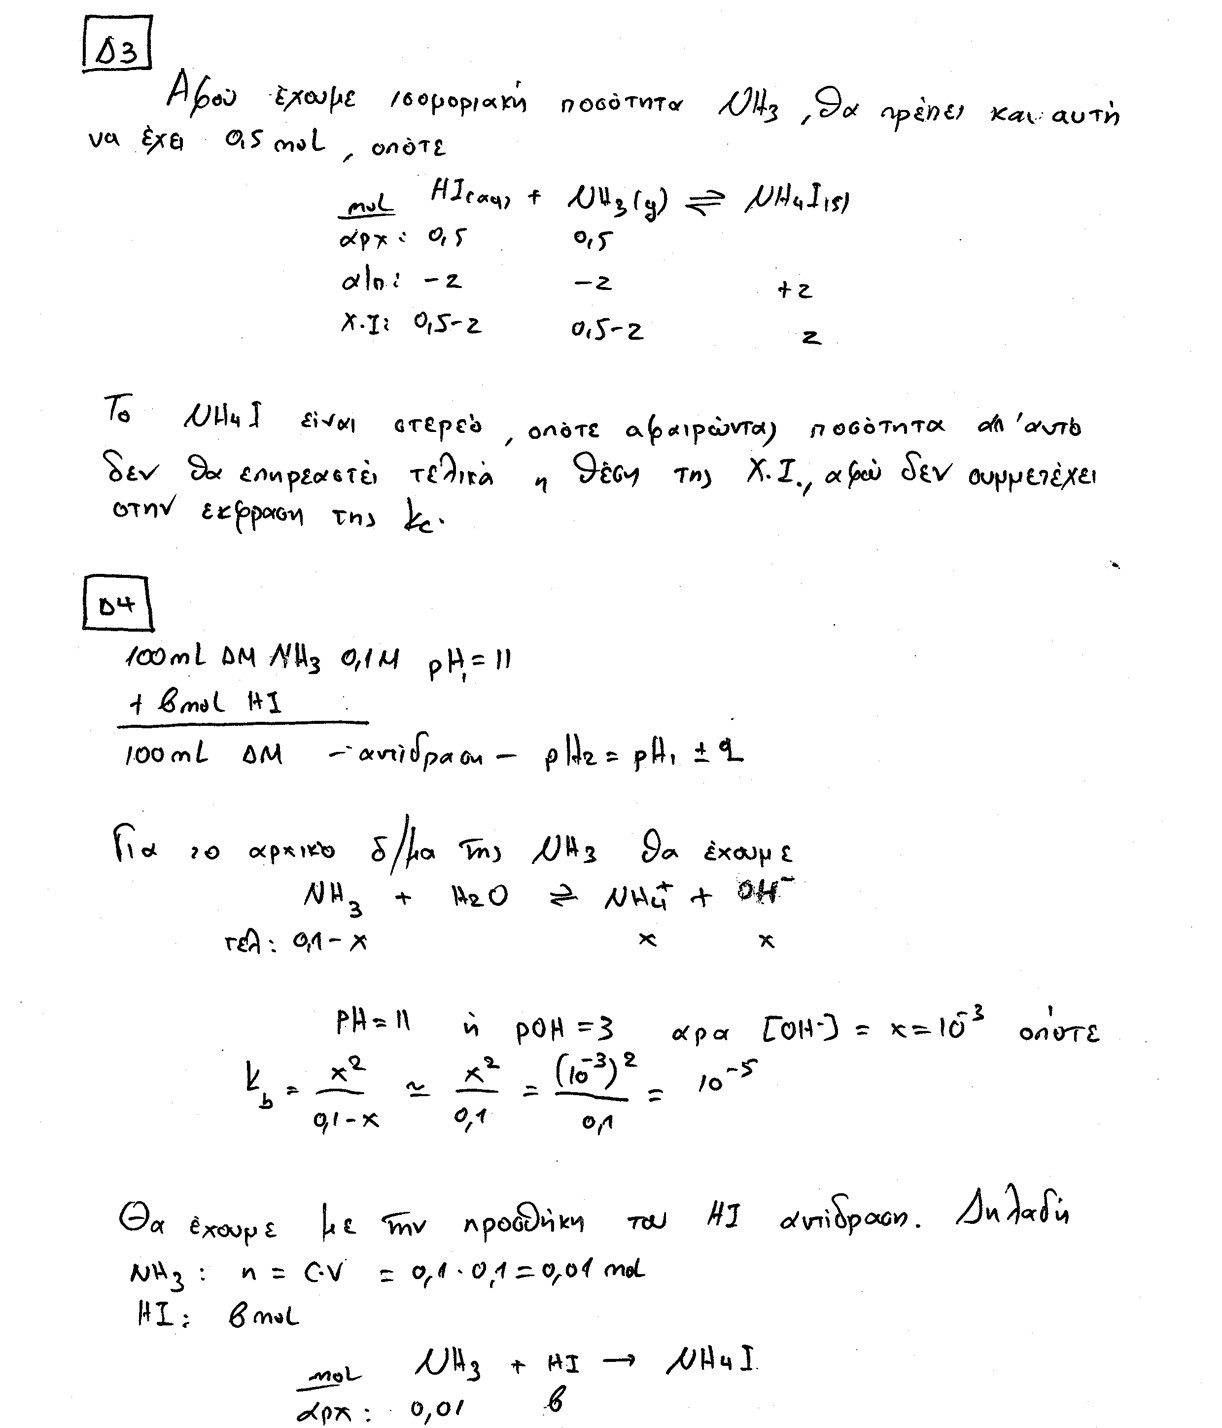 Δ3
Αφού έχουμε ισομοριακή ποσότητα NH3, θα πρέπει και αυτή
να έχει 0,5 mol, οπότε
mol HI(aq) + NH3(g) ⇌ NH4I(s)
αρχ: 0,5 0,5
αλλ: -z -z +z
Χ.Ι: 0,5-z 0,5-z z
Το NH4I είναι στερεό, οπότε αφαιρώντας ποσότητα απ' αυτό
δεν θα επηρεαστεί τελικά η θέση της Χ.Ι., αφού δεν συμμετέχει
στην έκφραση της kc.
Δ4
100mL ΔΜ NH3 0,1M pH1 = 11
+ β mol HI
100mL ΔΜ - αντίδραση - pH2 = pH1 ± 2
Για το αρχικό δ/μα της NH3 θα έχουμε
NH3 + H2O ⇌ NH4+ + OH-
τελ: 0,1-x x x
PH = 11 ή pOH = 3 αρα [OH-] = x = 10^-3 οπότε
kb = x^2/(0,1-x) ≃ x^2/0,1 = (10^-3)^2/0,1 = 10^-5
Θα έχουμε με την προσθήκη του HI αντίδραση. Δηλαδή
NH3: n = C·V = 0,1·0,1 = 0,01 mol
HI: β mol
mol NH3 + HI → NH4I
αρχ: 0,01 β